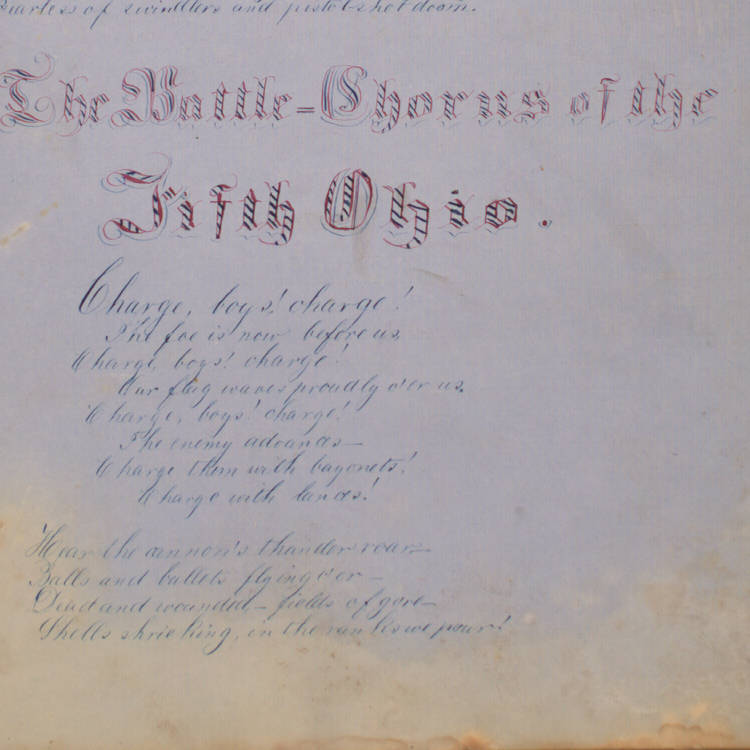 Fearless of swindlers and pistol-shot doom.
The Battle-Chorus of the
Fifth Ohio.
Charge, boys! charge!
The foe is now before us,
Charge, boys! charge!
Our flag waves proudly o'er us.
Charge, boys! charge!
The enemy advances—
Charge them with bayonets!
Charge with lances!
Hear the cannon's thunder roar—
Balls and bullets flying o'er—
Dead and wounded—fields of gore—
Shells shrieking, in the ranks we pour!